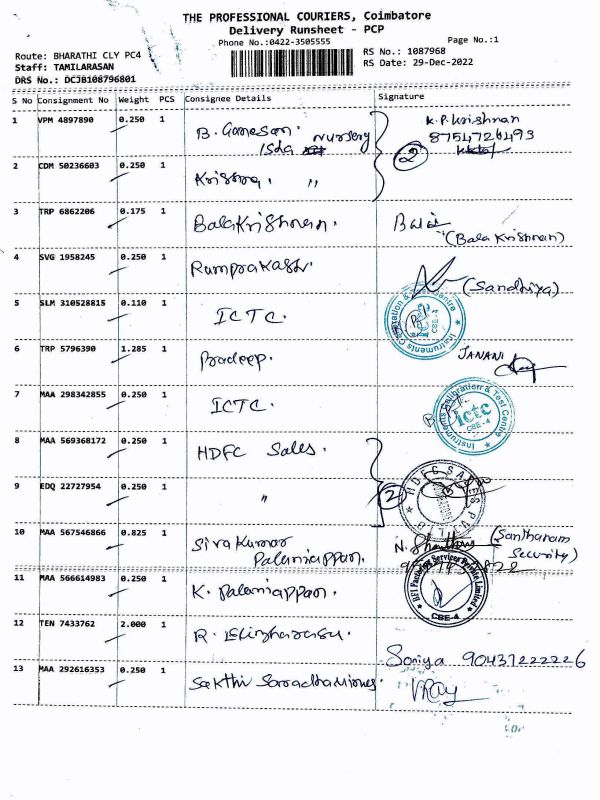 THE PROFESSIONAL COURIERS, Coimbatore
Delivery Runsheet - PCP
Phone No.:0422-3505555
Page No.:1
Route: BHARATHI CLY PC4
RS No.: 1087968
Staff: TAMILARASAN
RS Date: 29-Dec-2022
DRS No.: DCJB108796801
S No Consignment No Weight PCS Consignee Details Signature
1 VPM 4897890 0.250 1 B. Ganesan. K.P.Krishnan
Isha Nursery 8754726493
2
2 CDM 50236603 0.250 1 Krishna. "
3 TRP 6862206 0.175 1 BalaKrishnan. Balai
(Bala Krishnan)
4 SVG 1958245 0.250 1 Ramprakash. (Sandhiya)
5 SLM 310528815 0.110 1 ICTC.
Instruments Calibration & Test Centre
CBE-4
6 TRP 5796390 1.285 1 Pradeep. JANANI
7 MAA 298342855 0.250 1 ICTC.
Instruments Calibration & Test Centre
ictc
CBE-4
8 MAA 569368172 0.250 1 HDFC Sales.
9 EDQ 22727954 0.250 1 "
2
HDFC SALES PVT LTD
10 MAA 567546866 0.825 1 Siva Kumar N. (Santharam
Palaniappan. Security)
11 MAA 566614983 0.250 1 K. Palaniappan.
Services Private Limited
CBE-4
12 TEN 7433762 2.000 1 R.
Soniya 90437222226
13 MAA 292616353 0.250 1 Sakthi